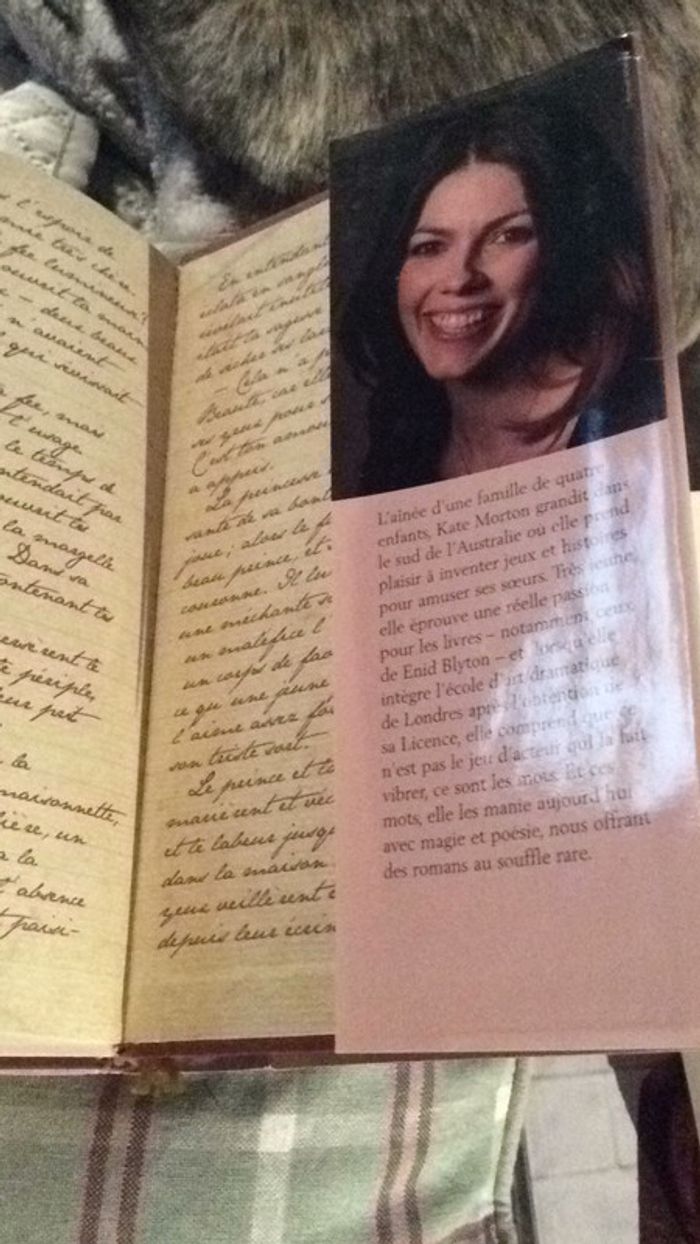 s l'espoir de
très chère
fée lumineuse?
ouvrit la main
– deux beaux
n'avaient
qui suivrait
fée, mais
l'usage
le temps de
entendait par
ouvert les
la margelle
Dans sa
contenant les
rent le
périple,
leur pet
la
maisonnette,
ière, un
a la
l'absence
paisi-
En entendant
éclata en sangl
était la sagesse
de sécher ses lar
– Cela n'a p
Beauté, car elle
ses yeux pour s
C'est ton amour
a appris.
La princesse
santé de sa bont
joue; alors le f
beau prince, et
couronne. Il lu
une méchante so
un maléfice l
un corps de fao
ce qu'une jeune
l'aime assez fo
son triste sort.
Le prince et la
marièrent et véc
et le labeur jusqu
dans la maison
yeux veillèrent
depuis leur écrin
L'aînée d'une famille de quatre
enfants, Kate Morton grandit dans
le sud de l'Australie où elle prend
plaisir à inventer jeux et histoires
pour amuser ses sœurs. Très jeune,
elle éprouve une réelle passion
pour les livres – notamment ceux
de Enid Blyton – et lorsqu'elle
intègre l'école d'art dramatique
de Londres après l'obtention de
sa Licence, elle comprend que ce
n'est pas le jeu d'acteur qui la fait
vibrer, ce sont les mots. Et ces
mots, elle les manie aujourd'hui
avec magie et poésie, nous offrant
des romans au souffle rare.